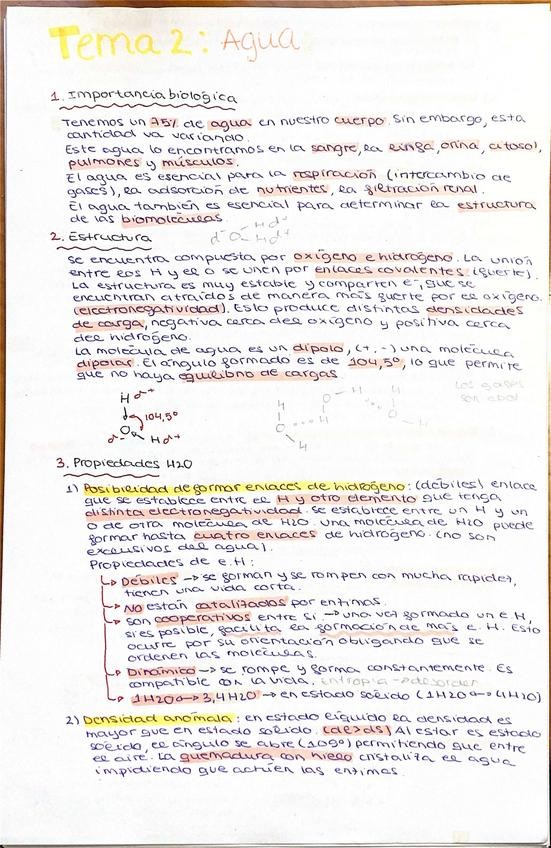 Tema 2: Agua
1. Importancia biológica
Tenemos un 75% de agua en nuestro cuerpo. Sin embargo, esta
cantidad va variando.
Este agua lo encontramos en la sangre, la linfa, orina, citosol,
pulmones y músculos.
El agua es esencial para la respiración (intercambio de
gases), la adsorción de nutrientes, la filtración renal.
El agua también es esencial para determinar la estructura
de las biomoléculas.
2. Estructura
Se encuentra compuesta por oxígeno e hidrógeno. La unión
entre los H y el O se unen por enlaces covalentes (fuerte).
La estructura es muy estable y comparten e⁻, que se
encuentran atraídos de manera más fuerte por el oxígeno.
(electronegatividad). Esto produce distintas densidades
de carga, negativa cerca del oxígeno y positiva cerca
del hidrógeno.
La molécula de agua es un dipolo, (+, -) una molécula
dipolar. El ángulo formado es de 104,5º, lo que permite
que no haya equilibrio de cargas.
H d⁺
104,5º
O
d⁻ H d⁺
3. Propiedades H2O
1) Posibilidad de formar enlaces de hidrógeno: (débiles) enlace
que se establece entre el H y otro elemento que tenga
distinta electronegatividad. Se establece entre un H y un
O de otra molécula de H2O. Una molécula de H2O puede
formar hasta cuatro enlaces de hidrógeno. (no son
exclusivos del agua).
Propiedades de e.H:
Débiles → se forman y se rompen con mucha rapidez,
tienen una vida corta.
No están catalizados por enzimas.
Son cooperativos entre sí → una vez formado un e H,
si es posible, facilita la formación de más e. H. Esto
ocurre por su orientación obligando que se
ordenen las moléculas.
Dinámico → se rompe y forma constantemente. Es
compatible con la vida. entropía → desorden
1H2O ↔ 3,4H2O → en estado sólido (1H2O ↔ 4H2O)
2) Densidad anómala: en estado líquido la densidad es
mayor que en estado sólido. (dl>ds) Al estar es estado
sólido, el ángulo se abre (109º) permitiendo que entre
el aire. La quemadura con hielo cristaliza el agua
impidiendo que actúen las enzimas.